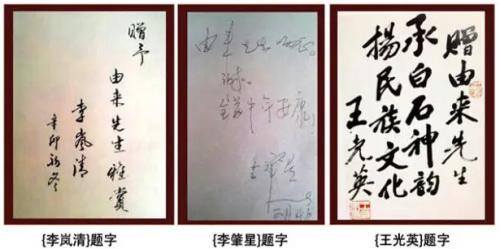 赠予
由来先生雅赏
李岚清
辛卯初冬
由来先生
全家幸福安康
李肇星
赠由来先生
承白石神韵
扬民族文化
王光英
{李岚清}题字
{李肇星}题字
{王光英}题字